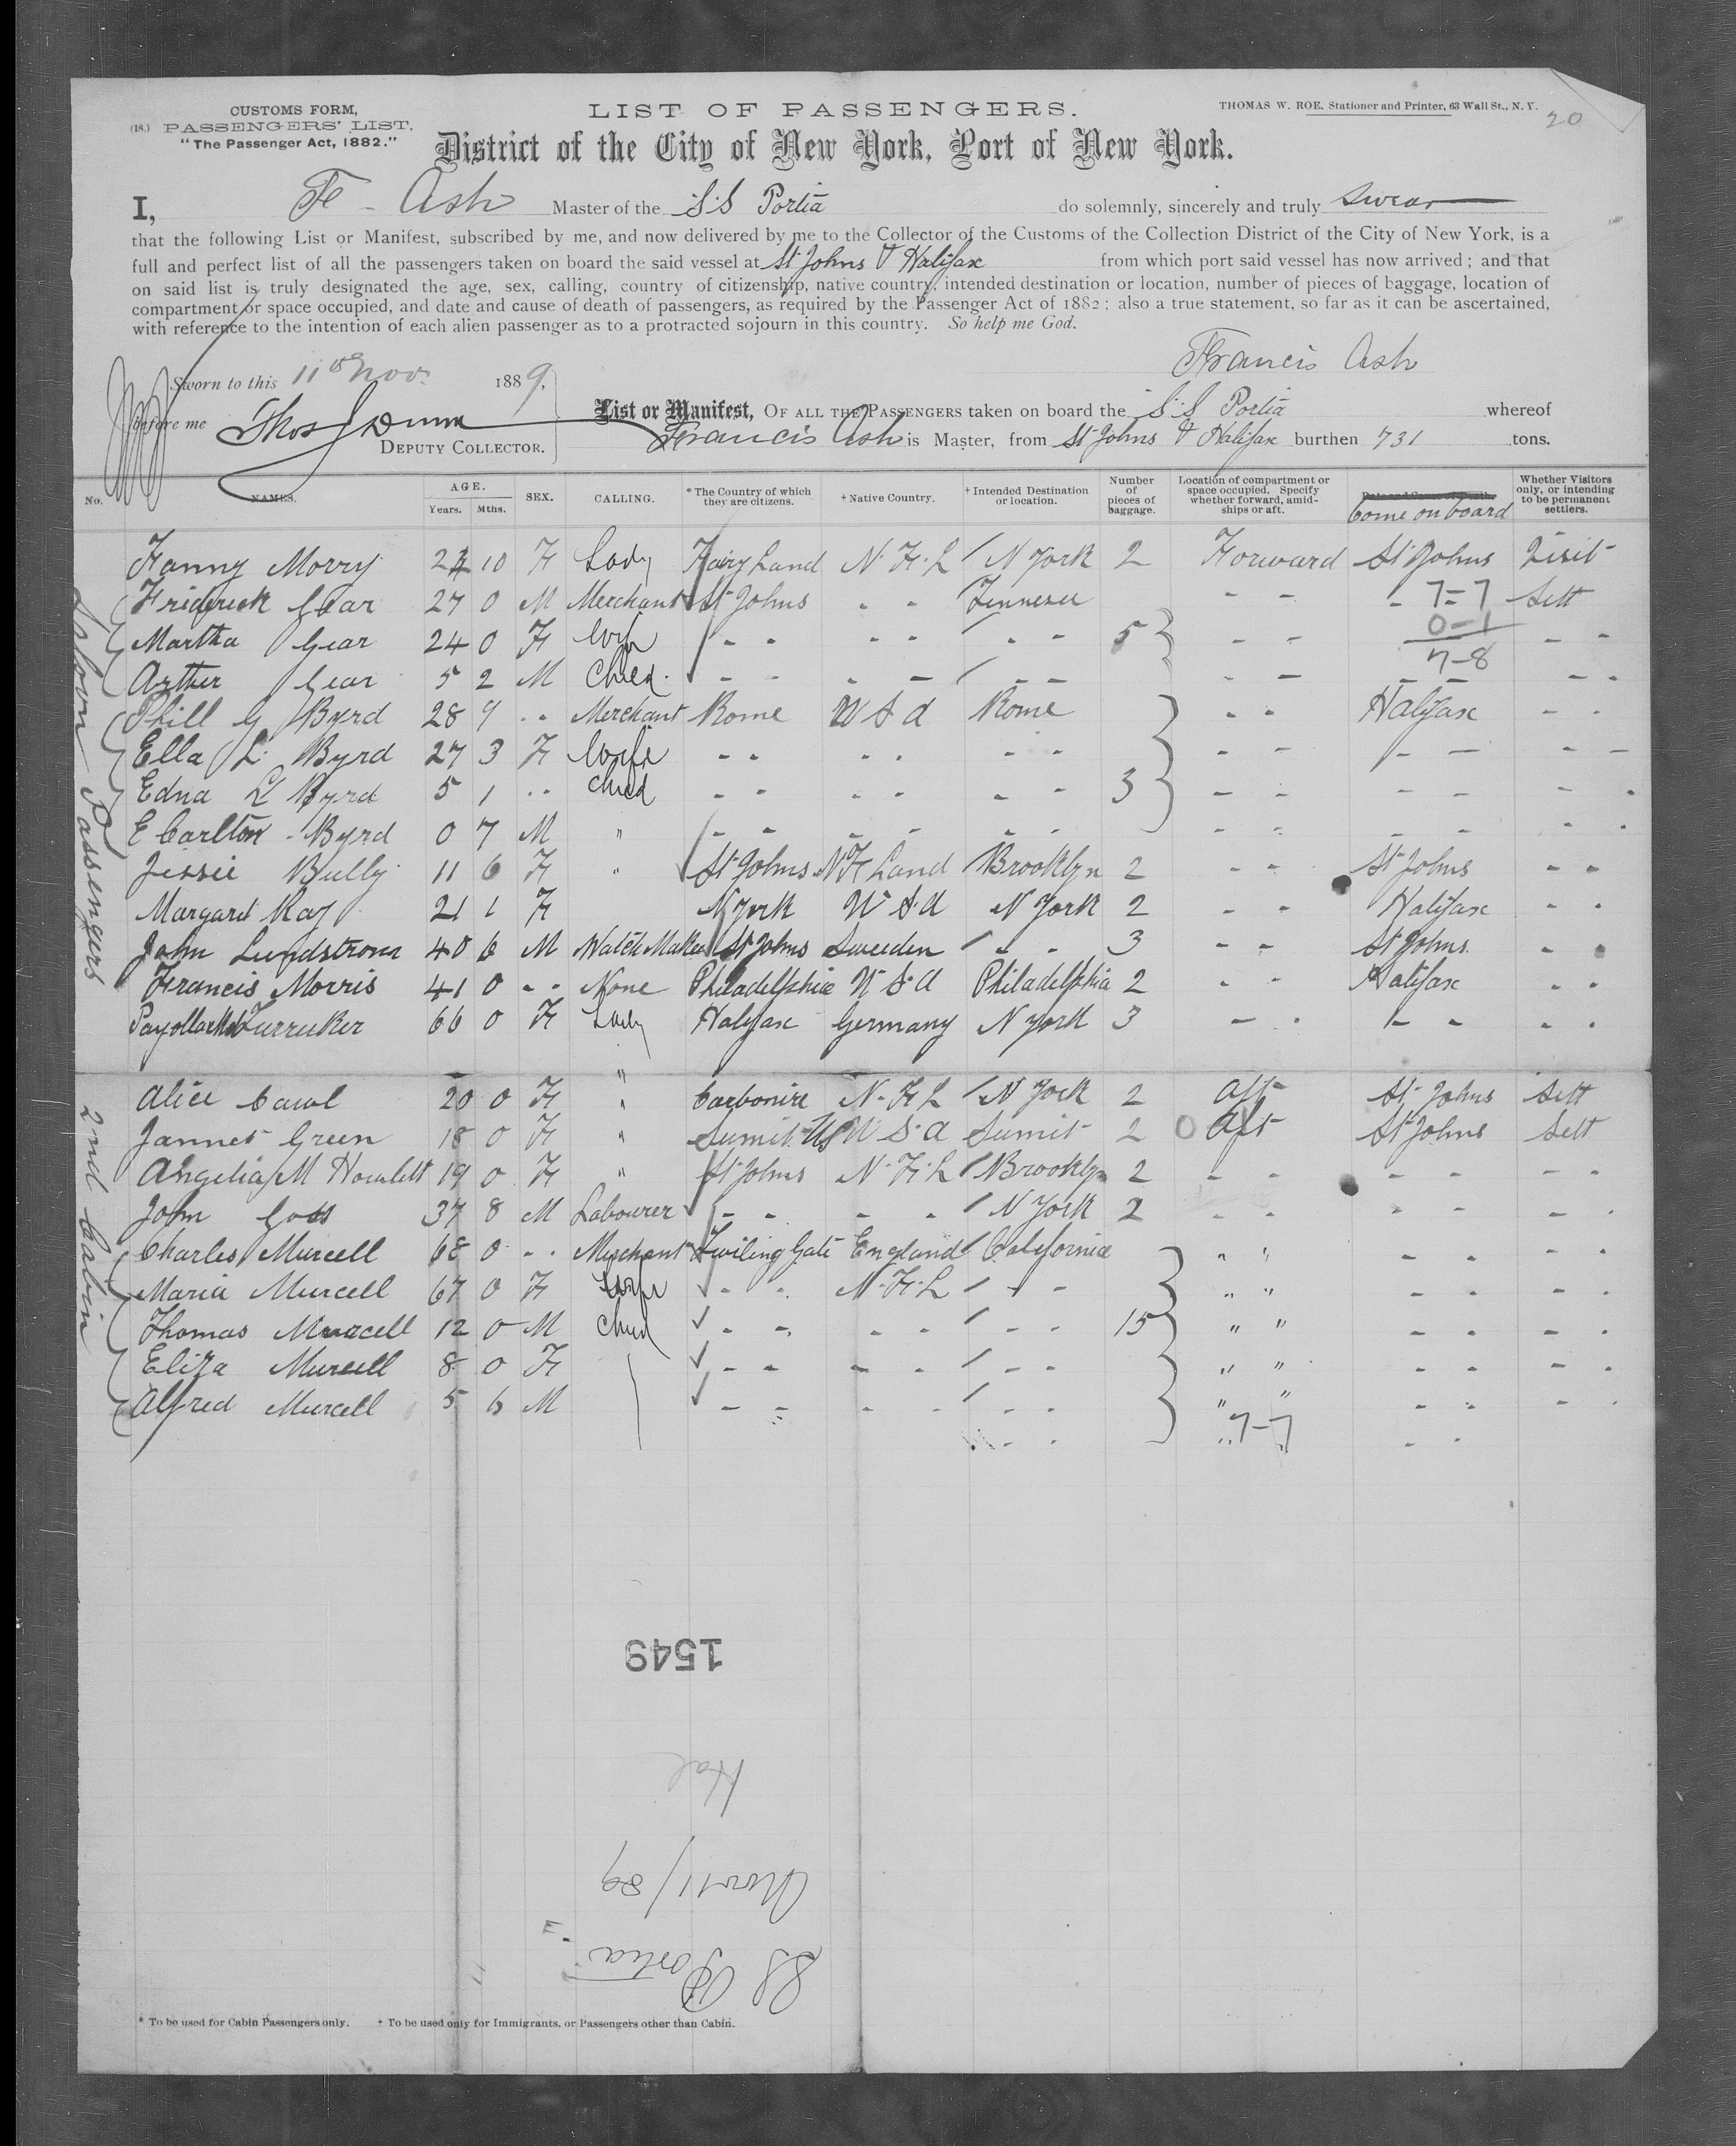 20
CUSTOMS FORM,
(18.) PASSENGERS' LIST.
"The Passenger Act, 1882."
LIST OF PASSENGERS.
THOMAS W. ROE, Stationer and Printer, 63 Wall St., N. Y.
District of the City of New York, Port of New York.
I, Fs Ash Master of the S.S Portia do solemnly, sincerely and truly swear
that the following List or Manifest, subscribed by me, and now delivered by me to the Collector of the Customs of the Collection District of the City of New York, is a
full and perfect list of all the passengers taken on board the said vessel at St Johns & Halifax from which port said vessel has now arrived; and that
on said list is truly designated the age, sex, calling, country of citizenship, native country, intended destination or location, number of pieces of baggage, location of
compartment or space occupied, and date and cause of death of passengers, as required by the Passenger Act of 1882; also a true statement, so far as it can be ascertained,
with reference to the intention of each alien passenger as to a protracted sojourn in this country. So help me God.
Francis Ash
Sworn to this 11th Nov. 1889,
before me Thos J Dunn
DEPUTY COLLECTOR.
List or Manifest, OF ALL THE PASSENGERS taken on board the S.S Portia whereof
Francis Ash is Master, from St Johns & Halifax burthen 731 tons.
No. NAMES. AGE. Years. Mths. SEX. CALLING. * The Country of which they are citizens. † Native Country. † Intended Destination or location. Number of pieces of baggage. Location of compartment or space occupied. Specify whether forward, amidships or aft. Date and Cause of Death. Come on board Whether Visitors only, or intending to be permanent settlers.
Saloon Passengers
Fanny Morry 24 10 F Lady Fairy Land N.F.L N York 2 Forward St Johns Visit
Friderick Gear 27 0 M Merchant St Johns - - Tennesee - - - 7=7 Sett
Martha Gear 24 0 F Wife - - - - - - 5 - - 0-1 - -
Arther Gear 5 2 M Child - - - - - - - - 7-8 - -
Phill G Byrd 28 9 " Merchant Rome U S A Rome - - Halifax - -
Ella L. Byrd 27 3 F Wife - - - - - - - - - - - -
Edna L Byrd 5 1 " Child - - - - - - 3 - - - - - -
E Carlton Byrd 0 7 M " - - - - - - - - - - - -
Jessie Bully 11 6 F " St Johns N F Land Brooklyn 2 - - St Johns - -
Margaret Ray 21 1 F N York U.S.A N York 2 - - Halifax - -
John Lundstrom 40 6 M Watch Maker St Johns Sweeden - - 3 - - St Johns - -
Francis Morris 41 0 - - None Philadelphia U.S.A Philadelphia 2 - - Halifax - -
66 0 F Lady Halifax Germany N York 3 - - - - - -
"
2nd Cabin
Alice Cawl 20 0 F " Carbonire N.F.L N York 2 Aft St Johns Sett
Jannet Green 18 0 F " Sumit U.S.A Sumit 2 0 Aft St Johns Sett
Angelia M Howlett 19 0 F " St Johns N.F.L Brooklyn 2 - - - - - -
John Goss 37 8 M Labourer - - - - N York 2 - - - - - -
Charles Murcell 68 0 - - Merchant Twiling Gate England California " " - - - -
Maria Murcell 67 0 F Wife - - N.F.L - - " " - - - -
Thomas Murcell 12 0 M Child - - - - - - 15 " " - - - -
Eliza Murcell 8 0 F - - - - - - " " - - - -
Alfred Murcell 5 6 M - - - - - - " " - - - -
7-7
1549
Hal
Nov 11/89
SS Portia
* To be used for Cabin Passengers only. † To be used only for Immigrants, or Passengers other than Cabin.